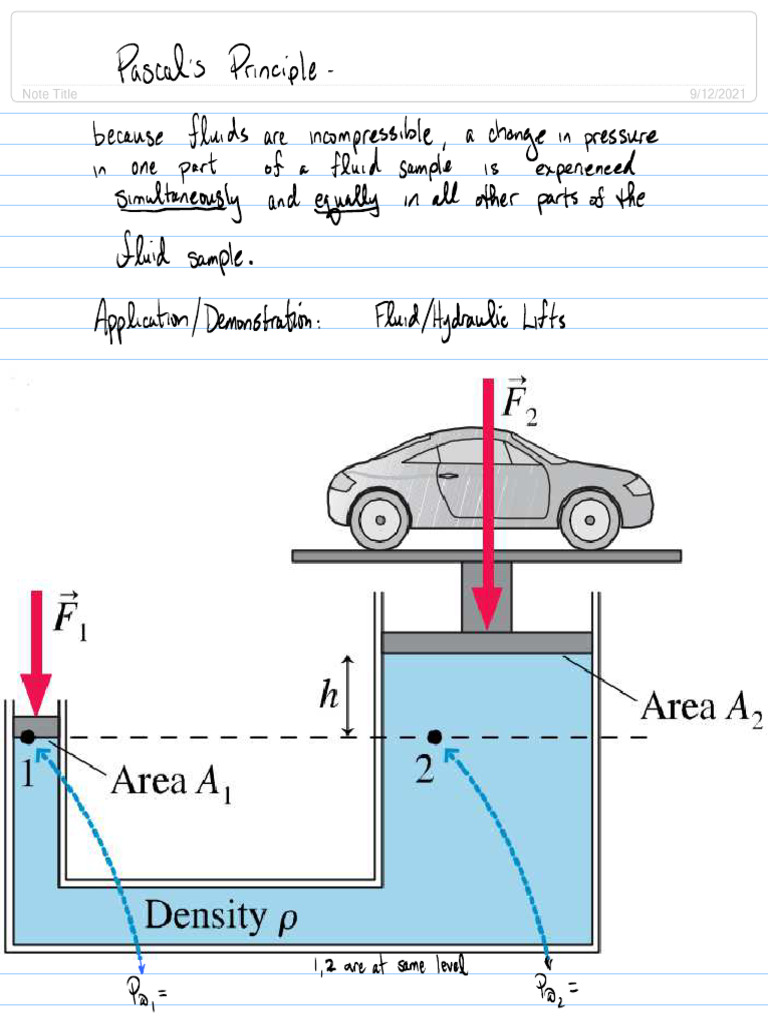 Pascal's Principle -
Note Title
9/12/2021
because fluids are incompressible, a change in pressure
in one part of a fluid sample is experienced
simultaneously and equally in all other parts of the
fluid sample.
Application/Demonstration: Fluid/Hydraulic Lifts
F⃗₂
F⃗₁
h
Area A₂
1
2
Area A₁
Density ρ
1,2 are at same level
P@₁ =
P@₂ =